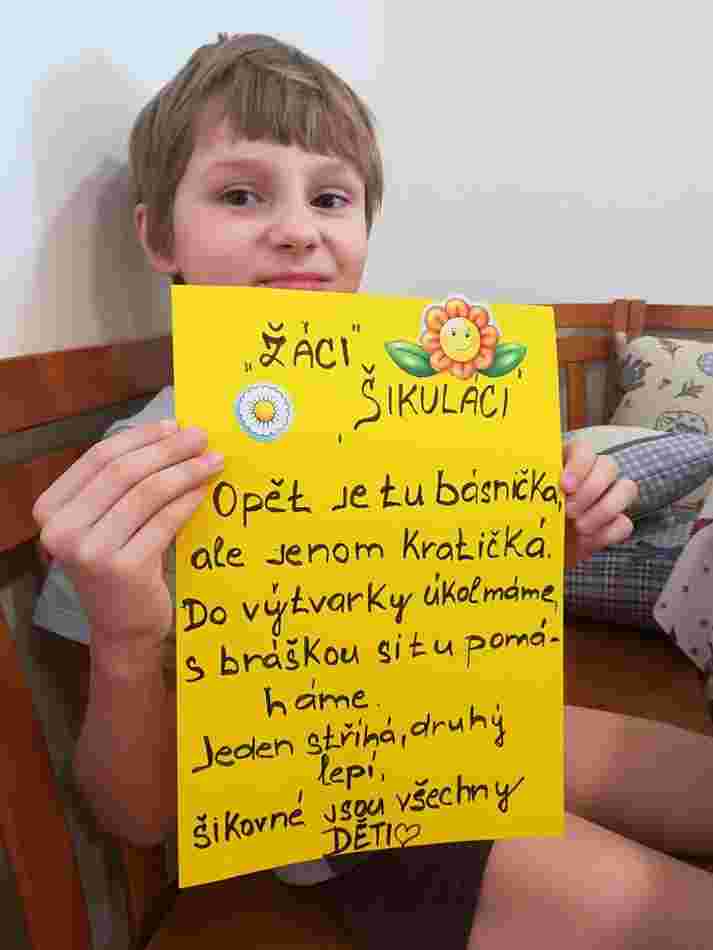 „ŽÁCI"
ŠIKULÁCI
Opět je tu básnička,
ale jenom kratičká.
Do výtvarky úkol máme,
s bráškou si tu pomá-
háme.
Jeden stříhá, druhý
lepí,
šikovné jsou všechny
DĚTI♡